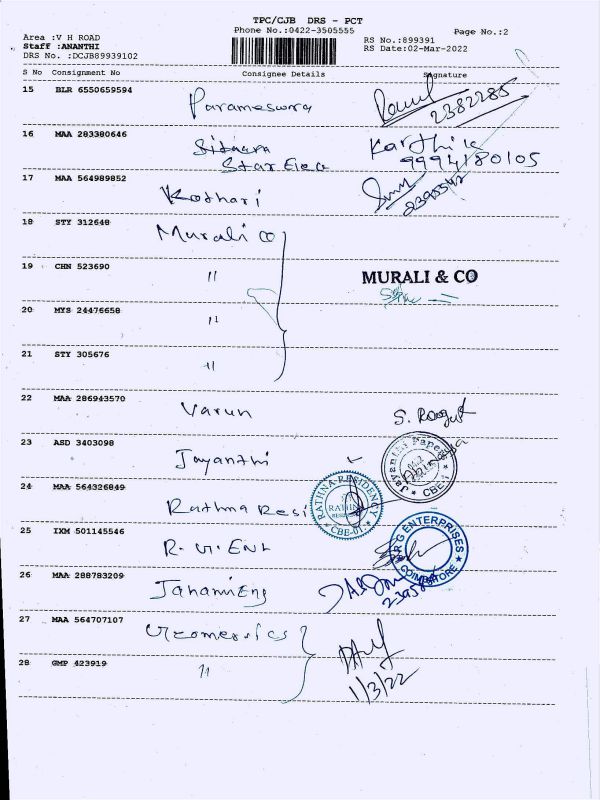 TPC/CJB DRS - PCT
Phone No.:0422-3505555
Page No.:2
Area :V H ROAD
RS No.:899391
Staff :ANANTHI
RS Date:02-Mar-2022
DRS No. :DCJB89939102
S No Consignment No Consignee Details Signature
15 BLR 6550659594 Parameswra
2382285
16 MAA 283380646 Sitaara Karthik
Star Elec 9994180105
17 MAA 564989852 Kothari
18 STY 312648 Murali co
19 CHN 523690 "
MURALI & CO
20 MYS 24476658 "
21 STY 305676 "
22 MAA 286943570 Varun S.
23 ASD 3403098 Jayanthi
Jayanthi Papers
CBE-1
24 MAA 564326849 Rathna Resi
RATHNA RESIDENCY
RATHNA
CBE-01
25 IXM 501145546 R.G.Ent
R G ENTERPRISES
COIMBATORE
26 MAA 288783209
27 MAA 564707107
28 GMP 423919 "
1/3/22